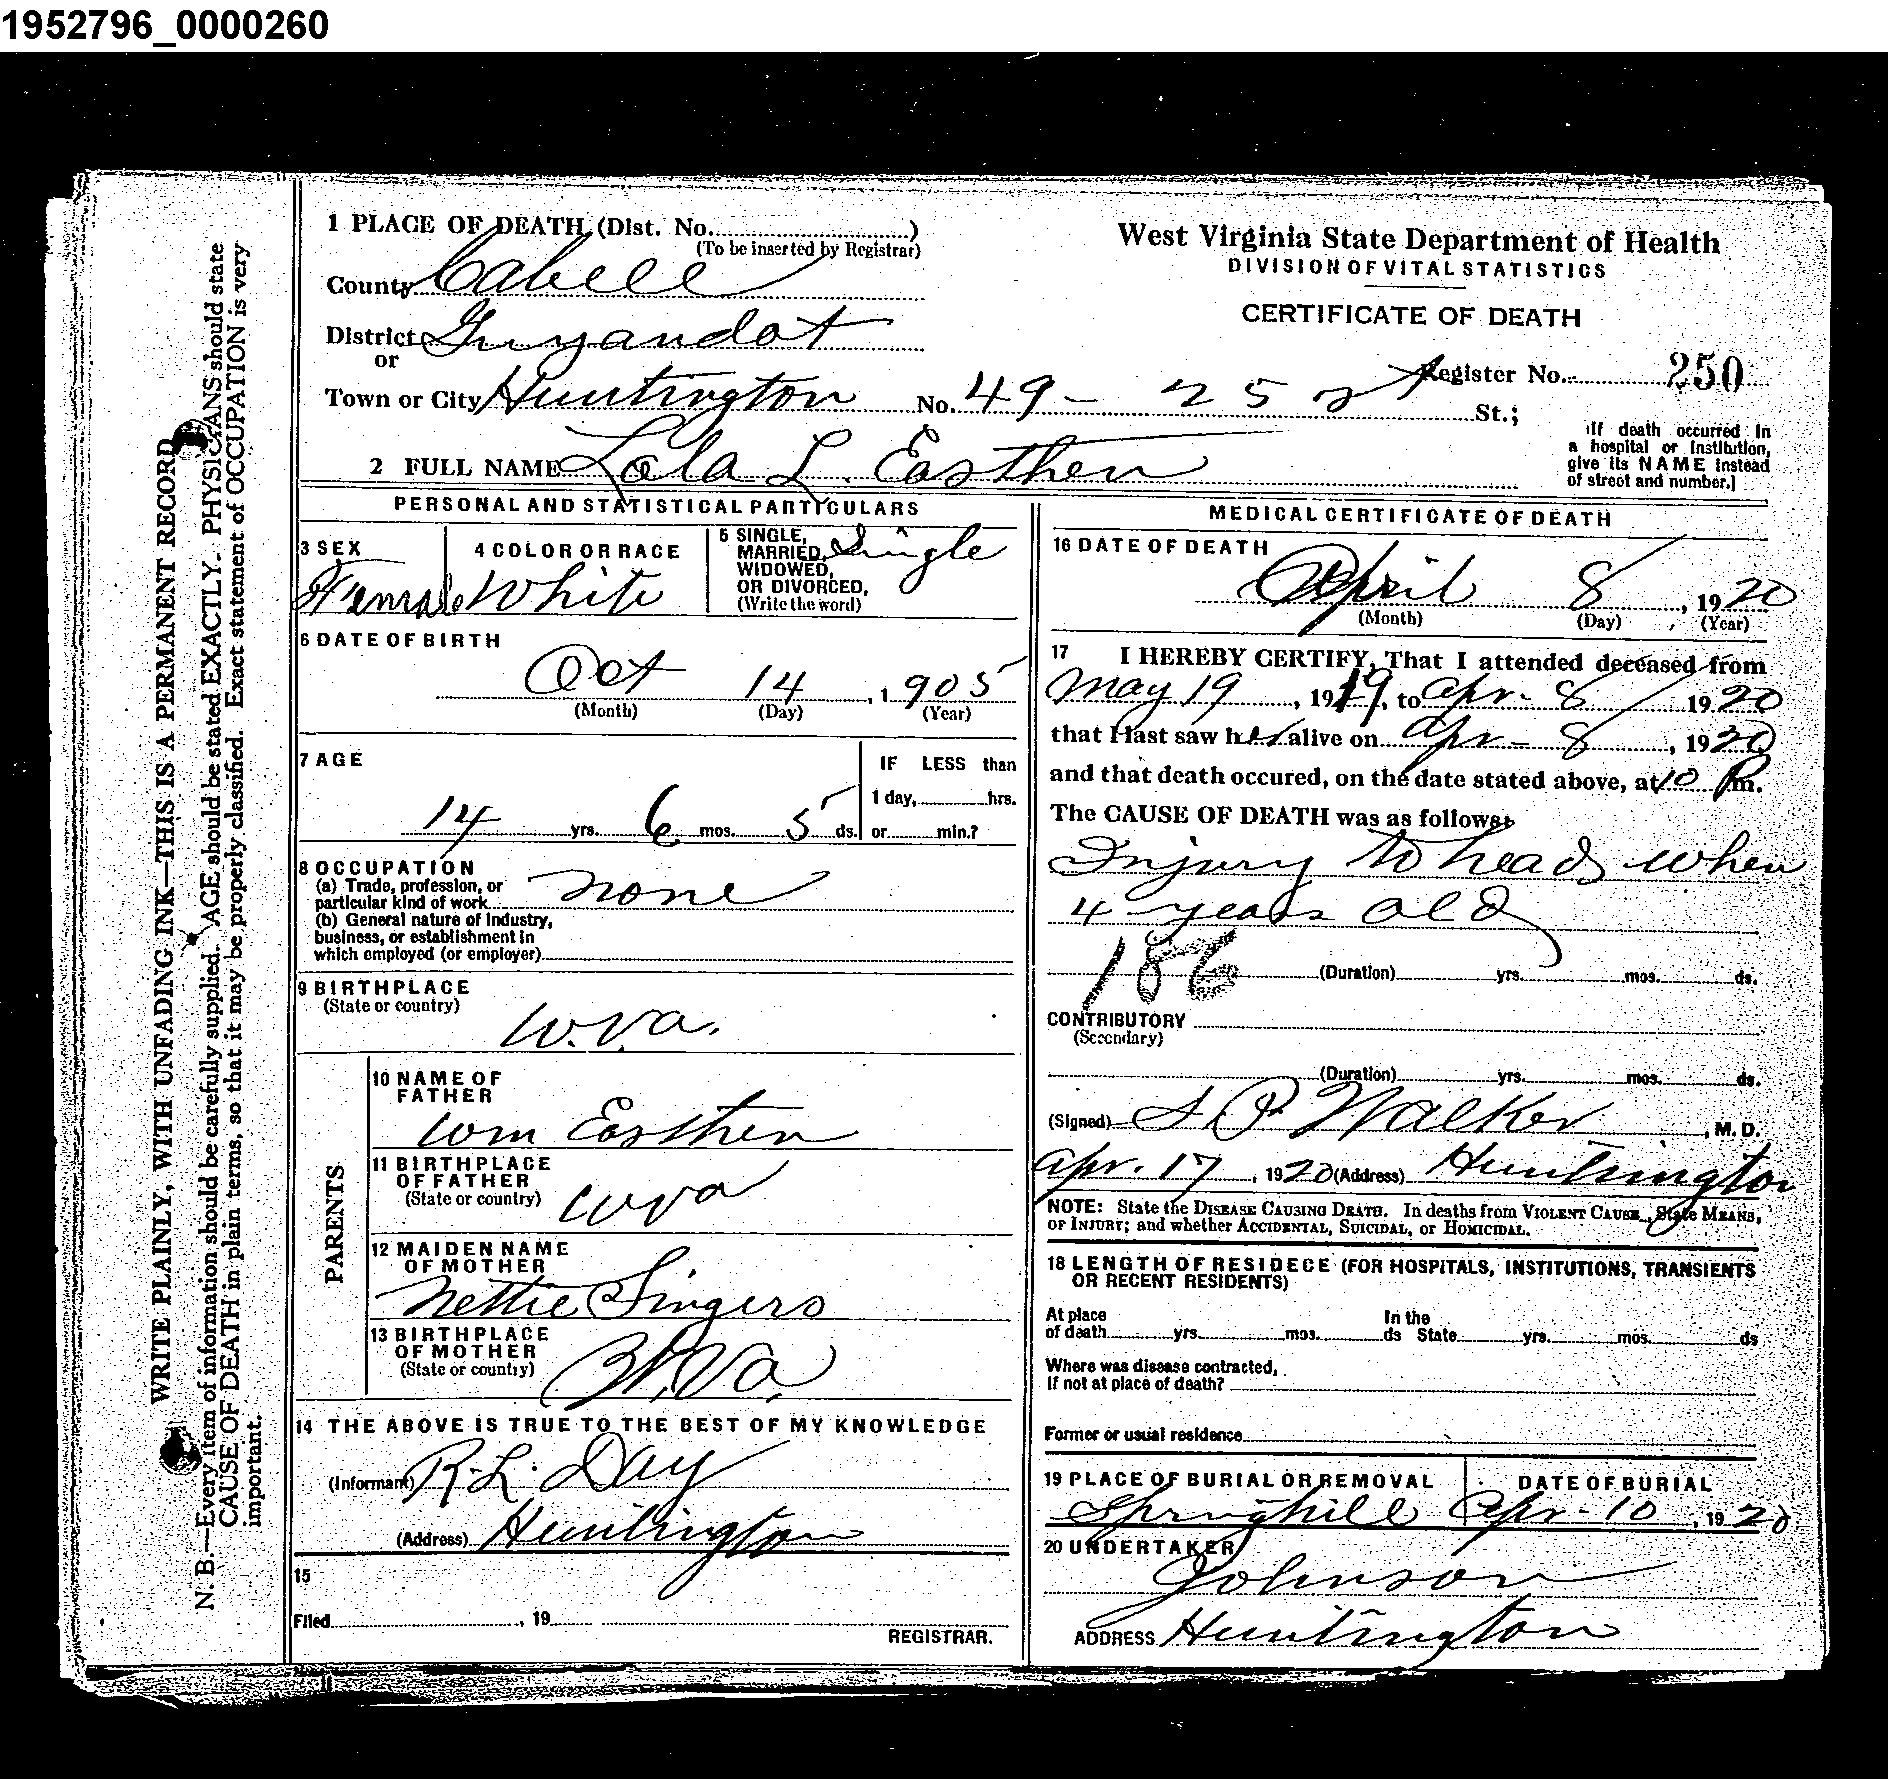 1952796_0000260
WRITE PLAINLY, WITH UNFADING INK—THIS IS A PERMANENT RECORD
N. B.—Every item of information should be carefully supplied. AGE should be stated EXACTLY. PHYSICIANS should state
CAUSE OF DEATH in plain terms, so that it may be properly classified. Exact statement of OCCUPATION is very
important.
1 PLACE OF DEATH (Dist. No. )
(To be inserted by Registrar)
County Cabell
District Guyandot
or
Town or City Huntington No. 49 - 25 St.;
West Virginia State Department of Health
DIVISION OF VITAL STATISTICS
CERTIFICATE OF DEATH
Register No. 250
[If death occurred in
a hospital or institution,
give its NAME instead
of street and number.]
2 FULL NAME Lola L. Easthen
PERSONAL AND STATISTICAL PARTICULARS
3 SEX
Female
4 COLOR OR RACE
White
5 SINGLE,
MARRIED,
WIDOWED,
OR DIVORCED,
(Write the word)
Single
6 DATE OF BIRTH
Oct 14, 1905
(Month) (Day) (Year)
7 AGE
14 yrs. 6 mos. 5 ds.
IF LESS than
1 day, hrs.
or min.?
8 OCCUPATION
(a) Trade, profession, or
particular kind of work none
(b) General nature of industry,
business, or establishment in
which employed (or employer)
9 BIRTHPLACE
(State or country)
W.Va.
PARENTS
10 NAME OF
FATHER
Wm Easthen
11 BIRTHPLACE
OF FATHER
(State or country) W Va
12 MAIDEN NAME
OF MOTHER
Nettie Singers
13 BIRTHPLACE
OF MOTHER
(State or country) W.Va.
14 THE ABOVE IS TRUE TO THE BEST OF MY KNOWLEDGE
(Informant) R. L. Day
(Address) Huntington
15
Filed , 19
REGISTRAR.
MEDICAL CERTIFICATE OF DEATH
16 DATE OF DEATH
April 8, 1920
(Month) (Day) (Year)
17 I HEREBY CERTIFY, That I attended deceased from
May 19, 1919, to Apr - 8 1920
that I last saw her alive on Apr - 8, 1920
and that death occured, on the date stated above, at 10 P m.
The CAUSE OF DEATH was as follows:
Injury to head when
4 years old
186 (Duration) yrs. mos. ds.
CONTRIBUTORY
(Secondary)
(Duration) yrs. mos. ds.
(Signed) P. Walker, M. D.
Apr. 17, 1920 (Address) Huntington
NOTE: State the DISEASE CAUSING DEATH. In deaths from VIOLENT CAUSE, State MEANS,
OF INJURY; and whether ACCIDENTAL, SUICIDAL, or HOMICIDAL.
18 LENGTH OF RESIDECE (FOR HOSPITALS, INSTITUTIONS, TRANSIENTS
OR RECENT RESIDENTS)
At place In the
of death yrs. mos. ds State yrs. mos. ds
Where was disease contracted,
If not at place of death?
Former or usual residence
19 PLACE OF BURIAL OR REMOVAL
Springhill
DATE OF BURIAL
Apr - 10, 1920
20 UNDERTAKER
Johnson
ADDRESS Huntington